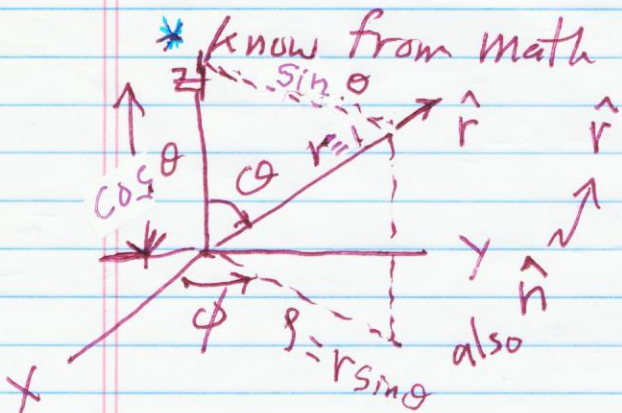 * Know from math
z sin θ
r̂ r̂
cos θ θ r=1
y n̂
φ ρ=r sinθ also
x